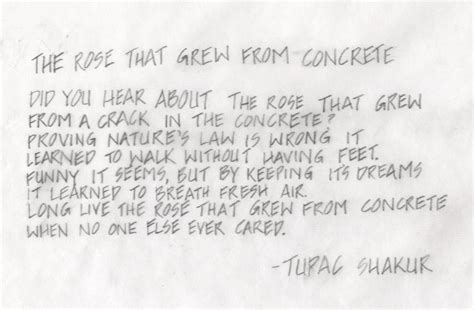 THE ROSE THAT GREW FROM CONCRETE
DID YOU HEAR ABOUT THE ROSE THAT GREW
FROM A CRACK IN THE CONCRETE?
PROVING NATURE'S LAW IS WRONG IT
LEARNED TO WALK WITHOUT HAVING FEET.
FUNNY IT SEEMS, BUT BY KEEPING IT'S DREAMS
IT LEARNED TO BREATH FRESH AIR.
LONG LIVE THE ROSE THAT GREW FROM CONCRETE
WHEN NO ONE ELSE EVER CARED.
-TUPAC SHAKUR